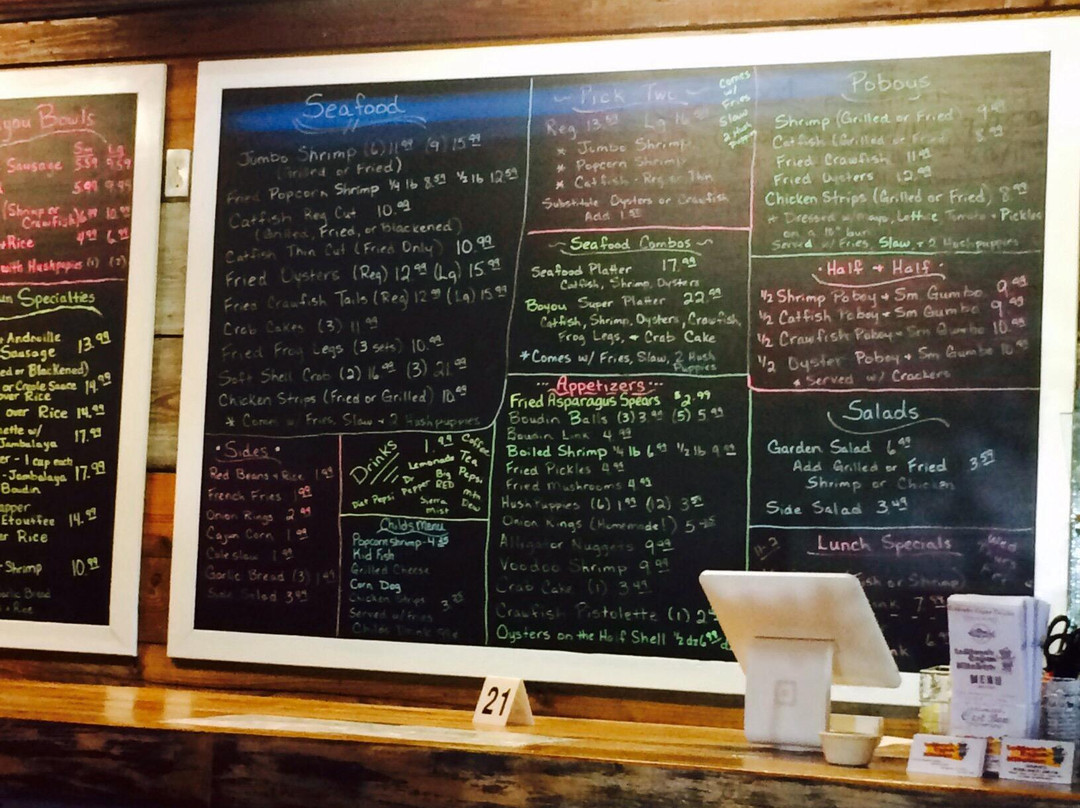 you Bowls
Sm Lg
Sausage 5.59 9.59
5.99 9.99
(Shrimp or
Crawfish) 6.99 10.99
+Rice 4.99 6.99
with Hushpupies (1) (2)
Specialties
Andouille
Sausage 13.99
ed or Blackened)
or Creole Sauce 14.99
over Rice
over Rice 14.99
ette w/
Jambalaya 17.99
er - 1 cup each
-Jambalaya 17.99
Boudin
apper
Etouffee 14.99
er Rice
-Shrimp 10.99
arlic Bread
+ Rice
Seafood
Jumbo Shrimp (6) 11.99 (9) 15.99
(Grilled or Fried)
Fried Popcorn Shrimp 1/4 lb 8.59 1/2 lb 12.59
Catfish Reg Cut 10.99
(Grilled, Fried, or Blackened)
Catfish Thin Cut (Fried Only) 10.99
Fried Oysters (Reg) 12.99 (Lg) 15.99
Fried Crawfish Tails (Reg) 12.99 (Lg) 15.99
Crab Cakes (3) 11.99
Fried Frog Legs (3 sets) 10.99
Soft Shell Crab (2) 16.99 (3) 21.99
Chicken Strips (Fried or Grilled) 10.99
* Comes w/ Fries, Slaw + 2 Hushpuppies
• Sides •
Red Beans + Rice 1.99
French Fries 1.99
Onion Rings 2.99
Cajun Corn 1.99
Coleslaw 1.99
Garlic Bread (3) 1.49
Side Salad 3.49
Drinks
1.99
Coffee
Tea
Lemonade
Pepsi
Dr Pepper
Big RED
Mtn Dew
Diet Pepsi
Sierra mist
Childs Menu
Popcorn Shrimp - 4.25
Kid Fish
Grilled Cheese
Corn Dog
Chicken Strips
Served w/ Fries
Childs Drink 99¢
Pick Two
Comes w/ Fries Slaw 2 Hush puppies
Reg 13.59 Lg 16.99
* Jumbo Shrimp
* Popcorn Shrimp
* Catfish - Reg or Thin
Substitute Oysters or Crawfish
Add 1.50
~ Seafood Combos ~
Seafood Platter 17.99
Catfish, Shrimp, Oysters
Bayou Super Platter 22.99
Catfish, Shrimp, Oysters, Crawfish,
Frog Legs, + Crab Cake
*Comes w/ Fries, Slaw, 2 Hush
Puppies
••• Appetizers •••
Fried Asparagus Spears $2.99
Boudin Balls (3) 3.99 (5) 5.99
Boudin Link 4.99
Boiled Shrimp 1/4 lb 6.99 1/2 lb 9.99
Fried Pickles 4.99
Fried Mushrooms 4.99
Hushpuppies (6) 1.99 (12) 3.59
Onion Rings (Homemade!)
Alligator Nuggets 9.99
Voodoo Shrimp 9.99
Crab Cake (1) 3.49
Crawfish Pistolette (1)
Oysters on the Half Shell 1/2 dz 6.99
Poboys
Shrimp (Grilled or Fried) 9.49
Catfish (Grilled or Fried) 8.99
Fried Crawfish 11.99
Fried Oysters 12.99
Chicken Strips (Grilled or Fried) 8.99
* Dressed w/ Mayo, Lettuce Tomato + Pickles
on a 10" bun
Served w/ Fries, Slaw, + 2 Hushpuppies
• Half + Half •
1/2 Shrimp Poboy + Sm Gumbo 9.49
1/2 Catfish Poboy + Sm Gumbo 9.49
1/2 Crawfish Poboy + Sm Gumbo 10.99
1/2 Oyster Poboy + Sm Gumbo 10.99
* Served w/ Crackers
Salads
Garden Salad 6.99
Add Grilled or Fried 3.59
Shrimp or Chicken
Side Salad 3.49
11-2 Lunch Specials
ish or Shrimp)
nk 7.
nk 6.
21
Cajun
Kitchen
MENU